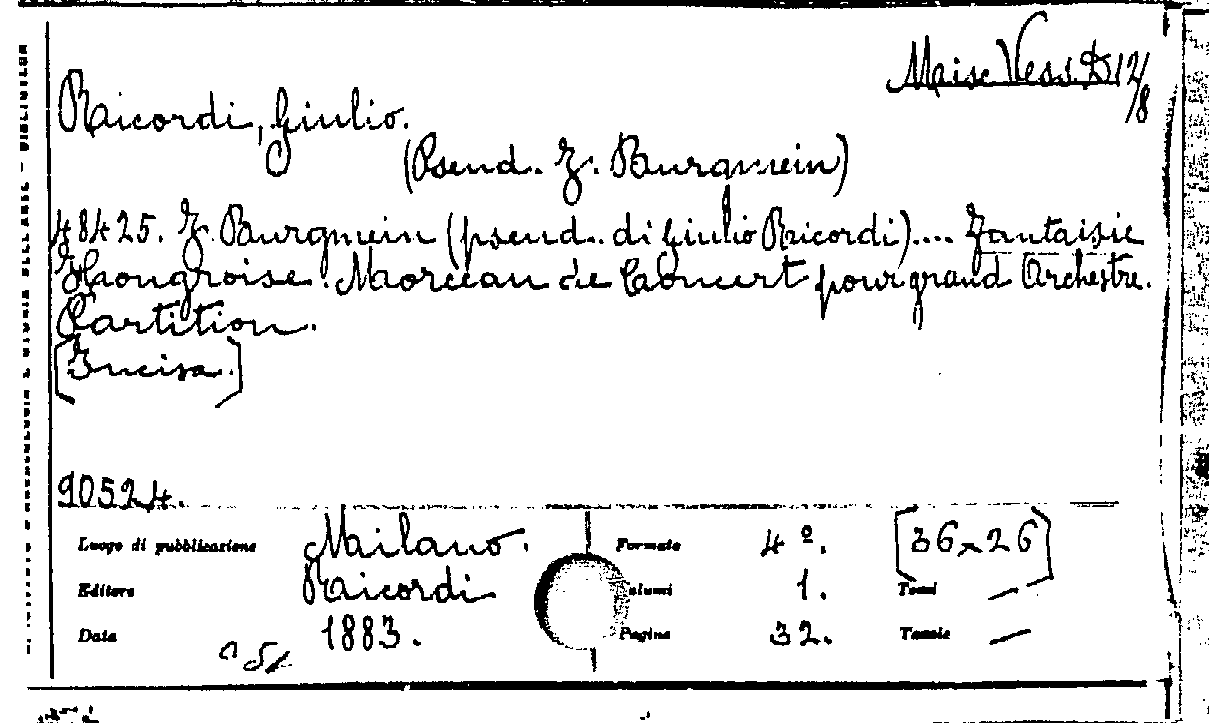 Maisc Vess. D 12/8
Ricordi, Giulio.
(Pseud. J. Burgmein)
48425. J. Burgmein (pseud. di Giulio Ricordi).... Fantaisie
Hongroise. Morceau de Concert pour grand Orchestre.
Partition.
[Incisa.]
90524.
Luogo di pubblicazione Milano. Formato 4º. [36x26]
Editore Ricordi Volumi 1. Tomi —
Data 1883. Pagine 32. Tavole —